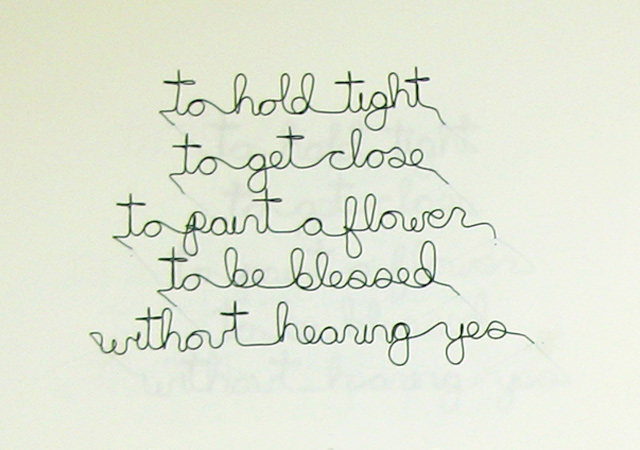 to hold tight
to get close
to paint a flower
to be blessed
without hearing yes